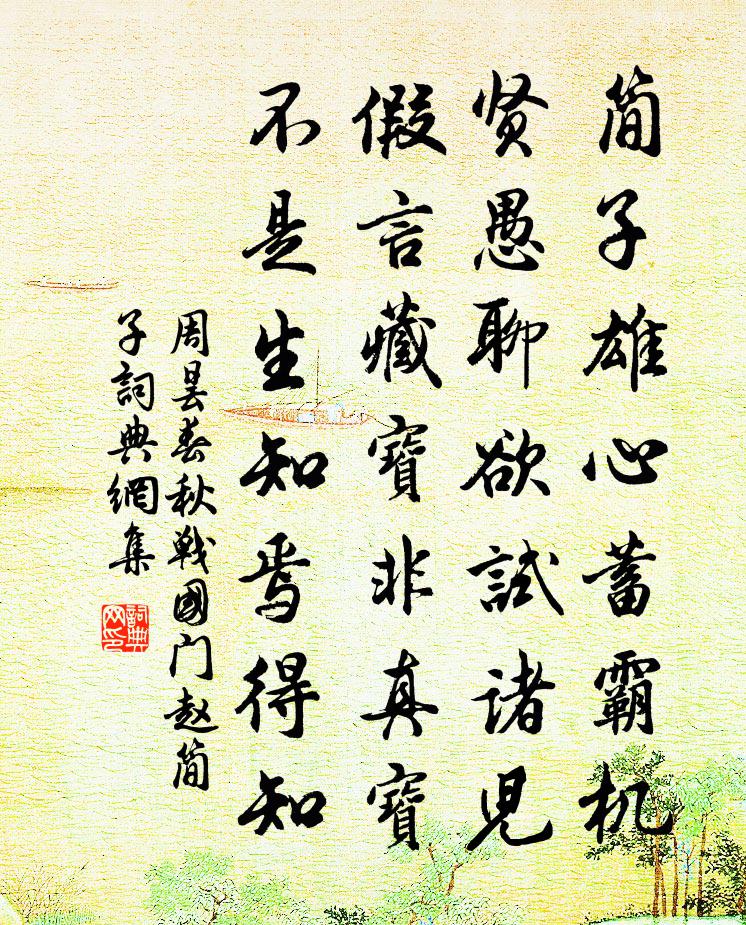 简子雄心蓄霸机
贤愚聊欲試諸児
假言藏寶非真寶
不是生知焉得知
周昙春秋戦國门赵简
子詞典網集
詞典
网印